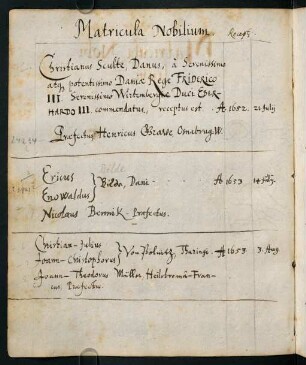 Matricula Nobilium.
Christianus Sculte Danus, à Serenissimo
atq potentissimo Daniæ Rege FRIDERICO
III. Serenissimo Wirtembergiæ Duci EBER-
HARDO III. commendatus, receptus est. Aº 1652. 21 July
Præfectus Henricus Osnabrug W.
Bilde
Ericus
Enowaldus } Bilde, Dani. Aº 1653 14
Nicolaus Præfectus.
Christian-Julius
Joann-Christophorus } Von Thuringi. Aº 1653. 3. Aug.
Joann-Theodorus Müller, Francus. Præfectus.